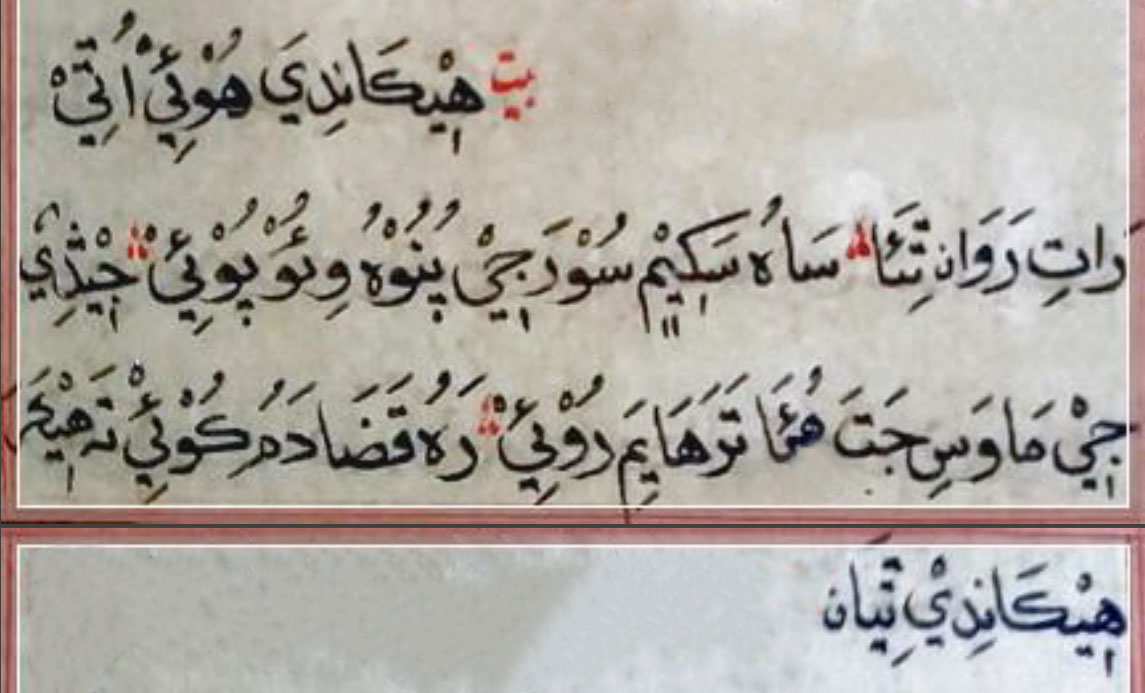 بيت هِيْڪَانِدِيَ هُوْئِيَ اُتِيْ
رَاتِ رَوَانِ تِئَا سَاہُ سَڪِيْمِ سُوْرَجِيْ پُنُوْہُ وِئُوْ پُوْئِيَ جِيْڏِيُ
جِيْ مَاوَسِ جَتَ هُئَا تَرَهَايِمَ رُوْئِيَ رَہُ قَضَادَمُ ڪُوْئِيَ نَہ هِيْئَرَ
هِيْڪَانِدِيْ تِيَان